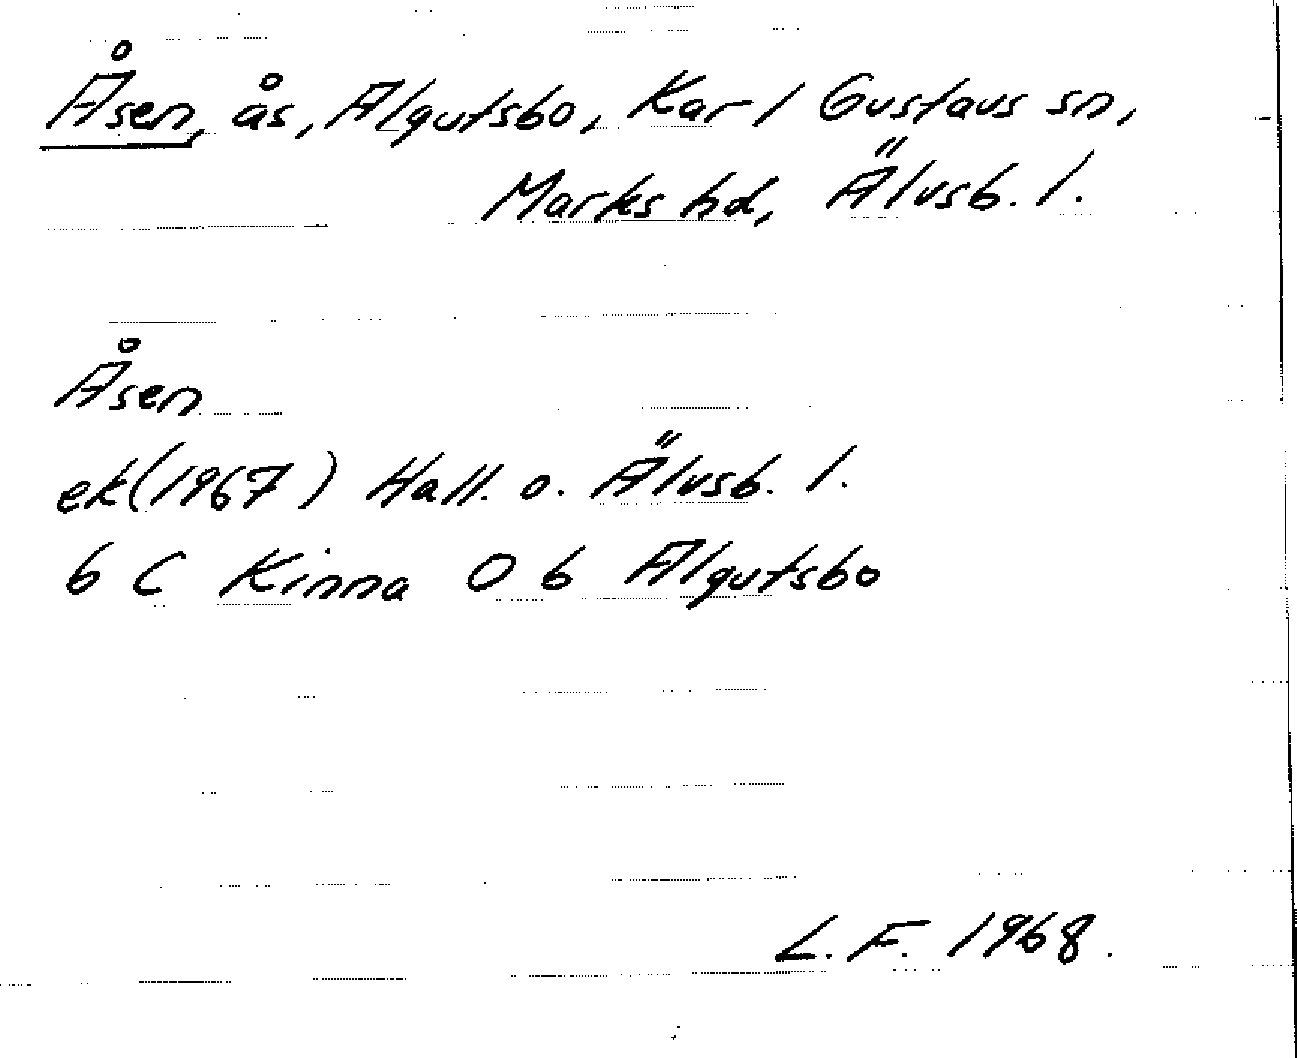 Åsen, ås, Algutsbo, Karl Gustavs sn,
Marks hd, Älvsb. l.
Åsen
ek(1967) Hall. o. Älvsb. l.
6 C Kinna 0 b Algutsbo
L. F. 1968.